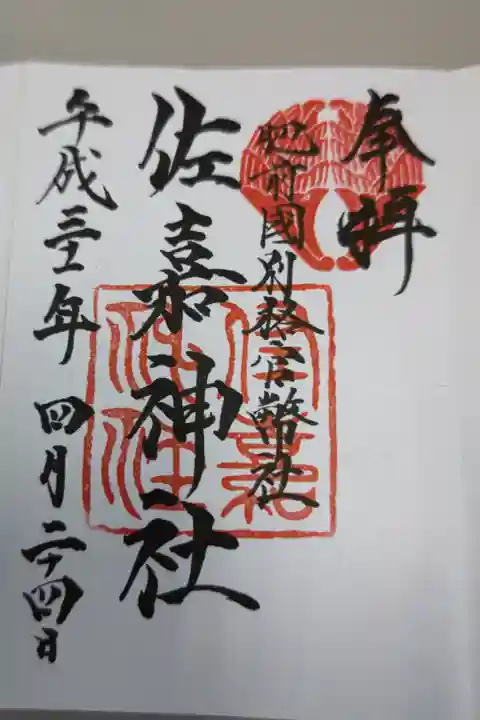 奉拝
肥前國別格官幣社
佐嘉神社
平成三十一年四月二十四日
佐嘉神社